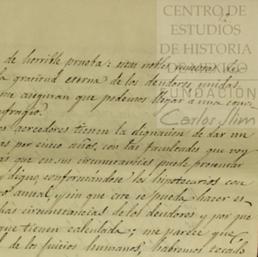 CENTRO DE
ESTUDIOS
DE HISTORIA
DE MÉXICO
FUNDACIÓN
Carlos Slim
de horrible prueba: son notas
la gratitud eterna de los deudores unidos
aseguran que podemos llegar a una
naufragio.
acreedores tienen la dignacion de dar un
as por cinco años, con las facultades que voy
que en sus circunstancias puede presentar
y digno, conformándose los hipotecarios con
anual, y sin que cree se pueda hacer
has circunstancias de los deudores y por
que tienen calculada; me parece que
l de los juicios humanos, habremos tocado